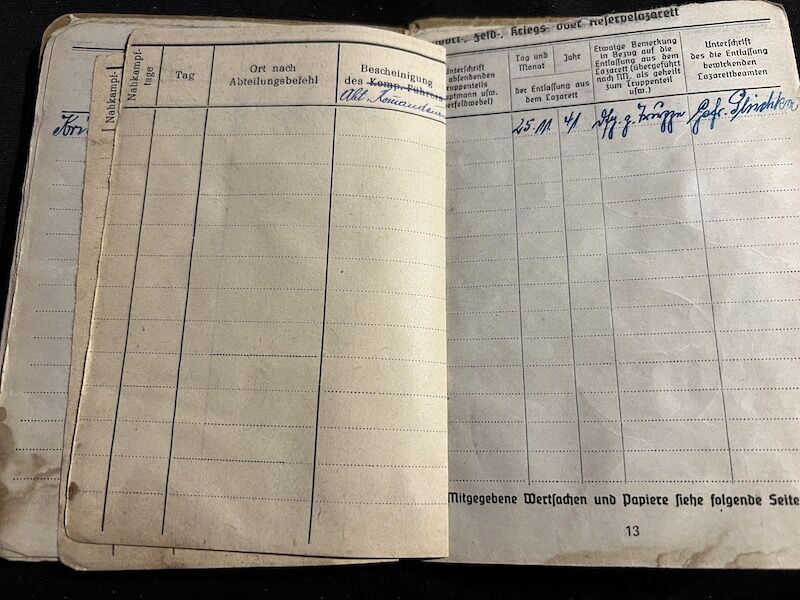 Nahkampf-
Nahkampf-
tage
Tag
Ort nach
Abteilungsbefehl
Bescheinigung
des Komp.-Führers
Abt.
Feld-, Kriegs- oder Reservelazarett
Unterschrift
absendenden
Truppenteils
Hauptmann usw.
Tag und
Monat
Jahr
der Entlassung aus
dem Lazarett
Etwaige Bemerkung
in Bezug auf die
Entlassung aus dem
Lazarett (übergeführt
nach NN., als geheilt
zum Truppenteil
usw.)
Unterschrift
des die Entlassung
bewirkenden
Lazarettbeamten
25. 11. 41 z. Truppe
Mitgegebene Wertsachen und Papiere siehe folgende Seite
13